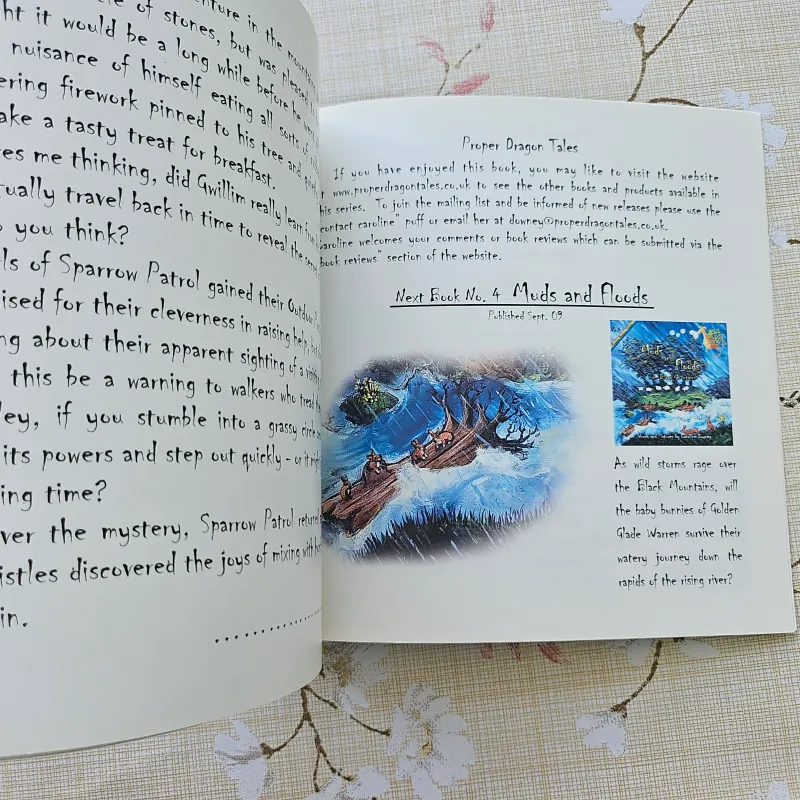 venture in the mountains
of stones, but was pleased
ht it would be a long while before he
nuisance of himself eating all sorts of
ering firework pinned to his tree and
ake a tasty treat for breakfast.
es me thinking, did Gwillim really learn
tually travel back in time to reveal the
you think?
ls of Sparrow Patrol gained their Outdoor
ised for their cleverness in raising help,
ng about their apparent sighting of a
this be a warning to walkers who tread
ley, if you stumble into a grassy circle
its powers and step out quickly - or it
ing time?
ver the mystery, Sparrow Patrol returned
istles discovered the joys of mixing with
in.
Proper Dragon Tales
If you have enjoyed this book, you may like to visit the website
t www.properdragontales.co.uk to see the other books and products available in
his series. To join the mailing list and be informed of new releases please use the
contact caroline" puff or email her at downey@properdragontales.co.uk.
aroline welcomes your comments or book reviews which can be submitted via the
book reviews" section of the website.
Next Book No. 4 Muds and Floods
Published Sept. 09
Muds and Floods
As wild storms rage over
the Black Mountains, will
the baby bunnies of Golden
Glade Warren survive their
watery journey down the
rapids of the rising river?